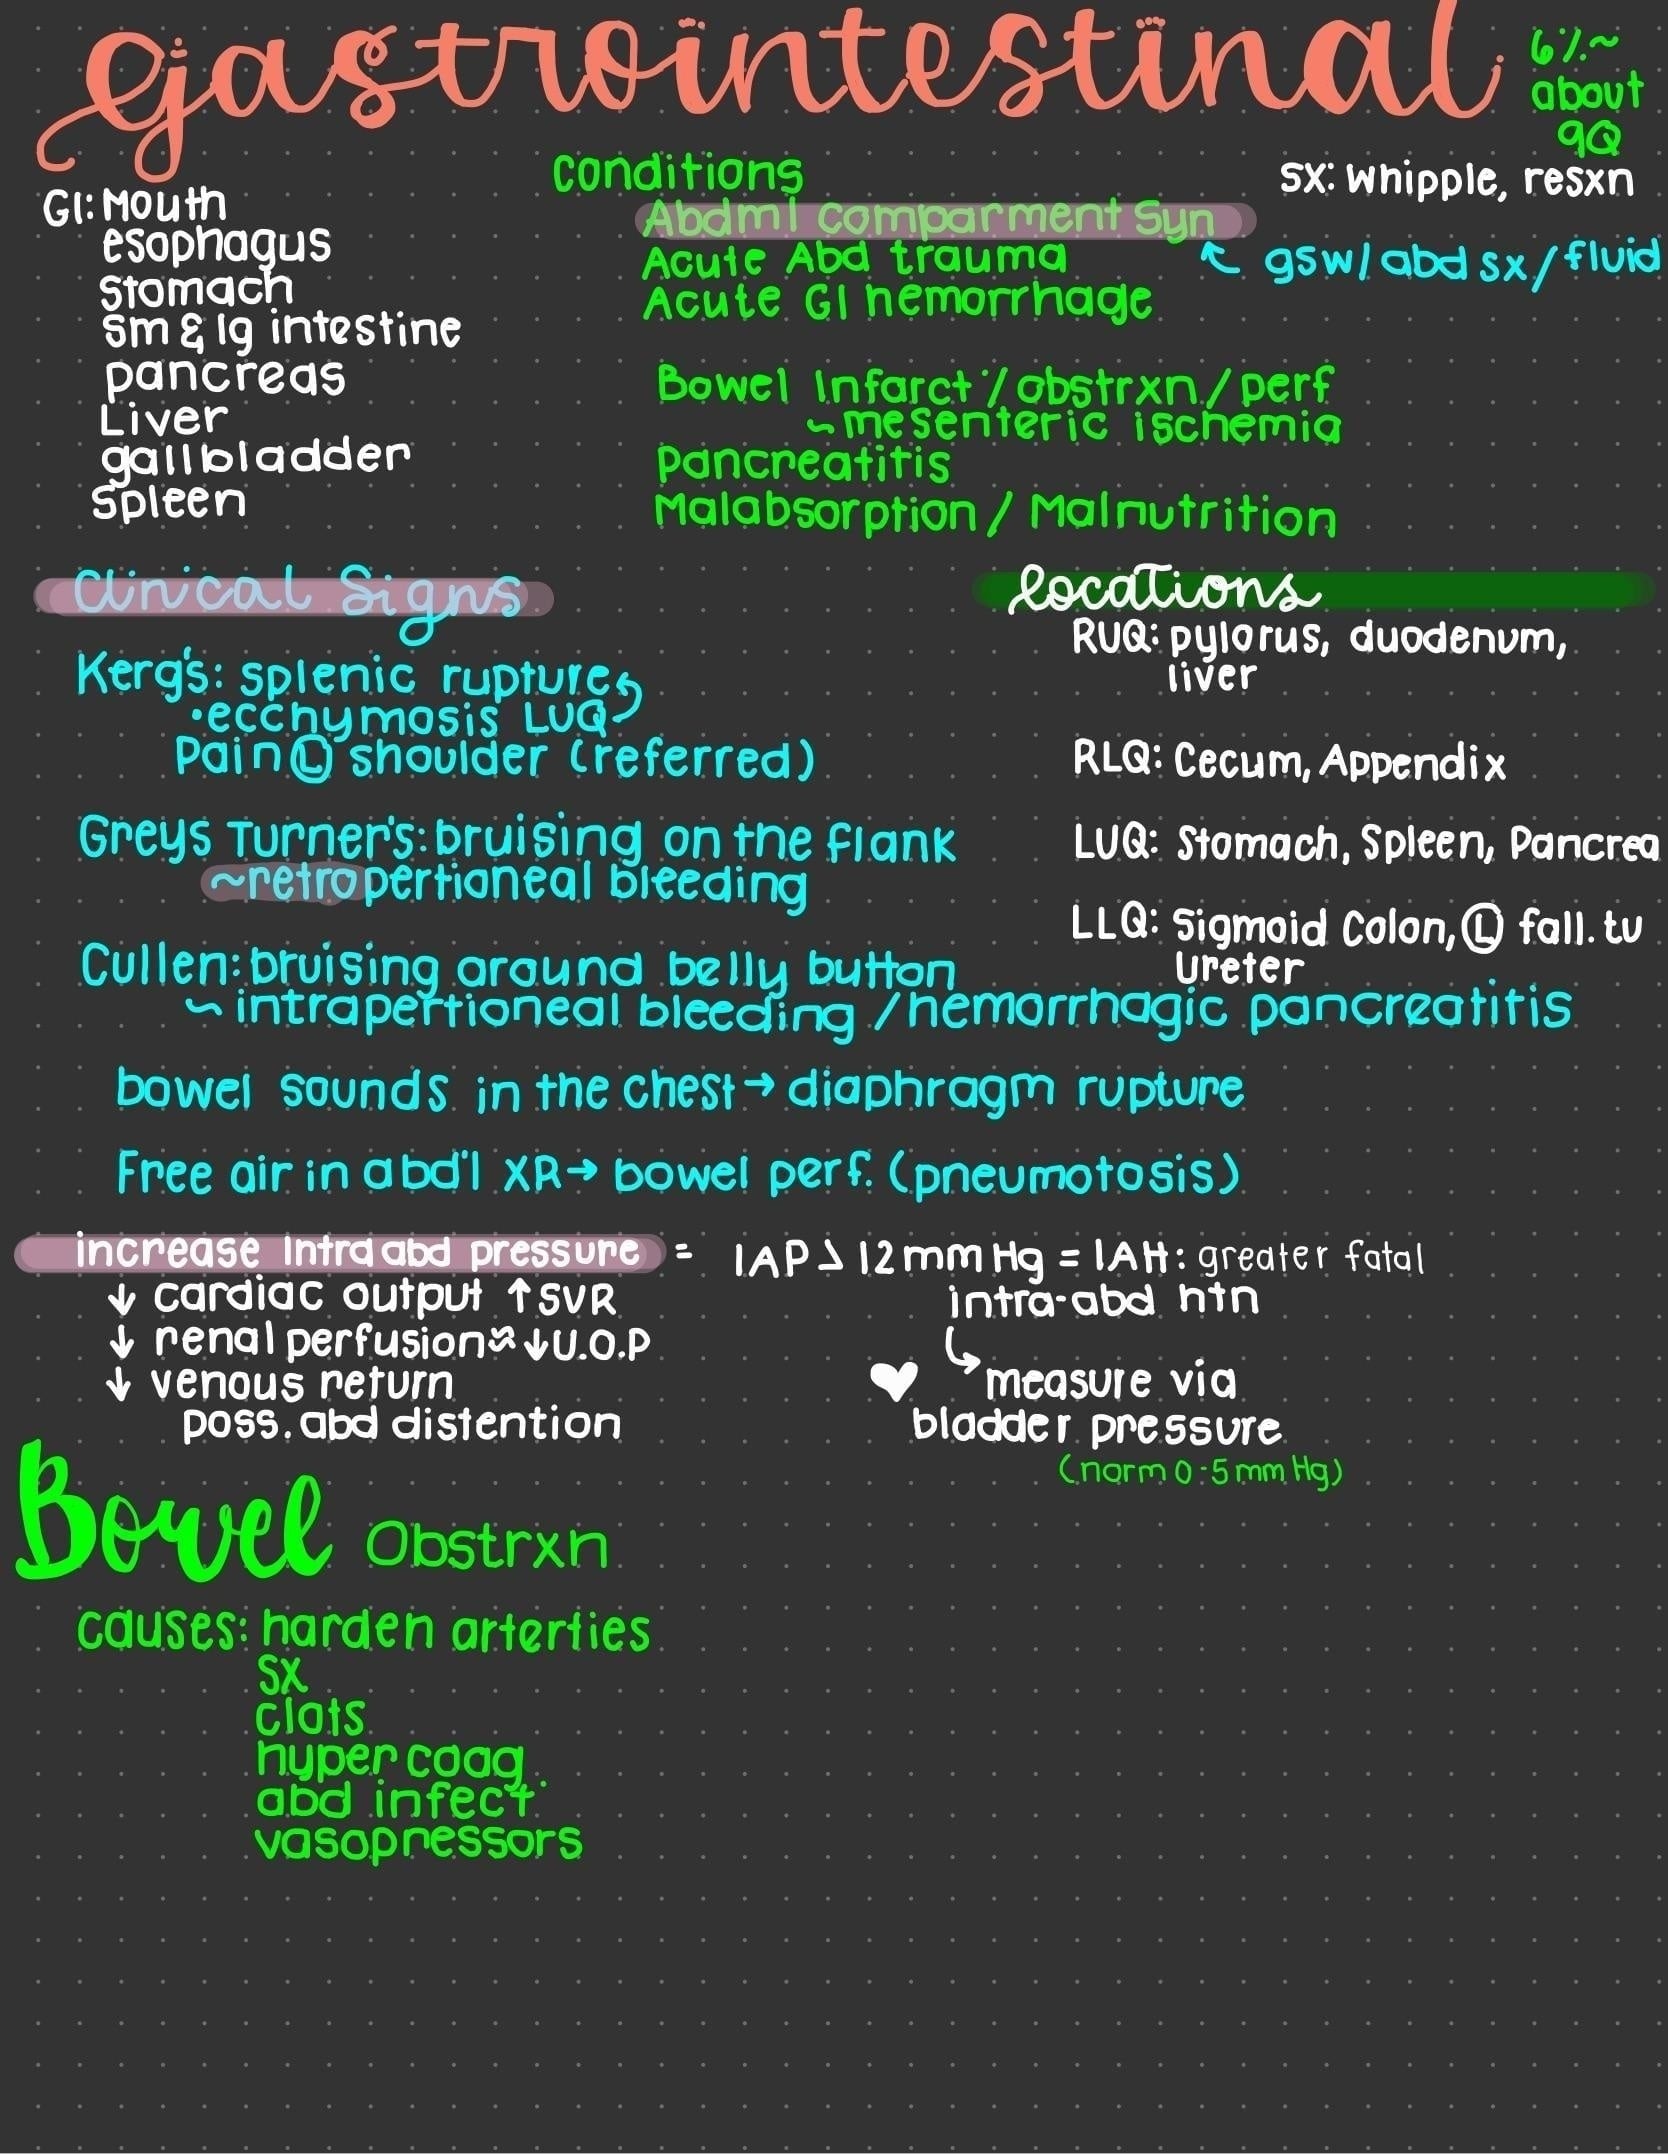 gastrointestinal
6% ~
about
9Q
GI: Mouth
esophagus
Stomach
Sm & lg intestine
pancreas
Liver
gallbladder
Spleen
Conditions
Abdml comparment Syn
Acute Abd trauma
Acute GI hemorrhage
Bowel Infarct / obstrxn / perf
~ mesenteric ischemia
Pancreatitis
Malabsorption / Malnutrition
SX: Whipple, resxn
gsw / abd sx / fluid
Clinical Signs
Kerg's: splenic rupture
• ecchymosis LUQ
Pain Ⓛ shoulder (referred)
Greys Turner's: bruising on the flank
~ retropertioneal bleeding
Cullen: bruising around belly button
~ intrapertioneal bleeding / hemorrhagic pancreatitis
bowel sounds in the chest → diaphragm rupture
Free air in abd'l XR → bowel perf. (pneumotosis)
locations
RUQ: pylorus, duodenum,
liver
RLQ: Cecum, Appendix
LUQ: Stomach, Spleen, Pancrea
LLQ: Sigmoid Colon, Ⓛ fall. tu
Ureter
increase Intra abd pressure =
↓ cardiac output ↑ SVR
↓ renal perfusion ≈ ↓ U.O.P
↓ venous return
poss. abd distention
IAP > 12 mm Hg = IAH: greater fatal
intra-abd htn
↳ measure via
♥ bladder pressure
(norm 0-5 mm Hg)
Bowel Obstrxn
causes: harden arterties
sx
clots
hyper coag
abd infect
vasopressors